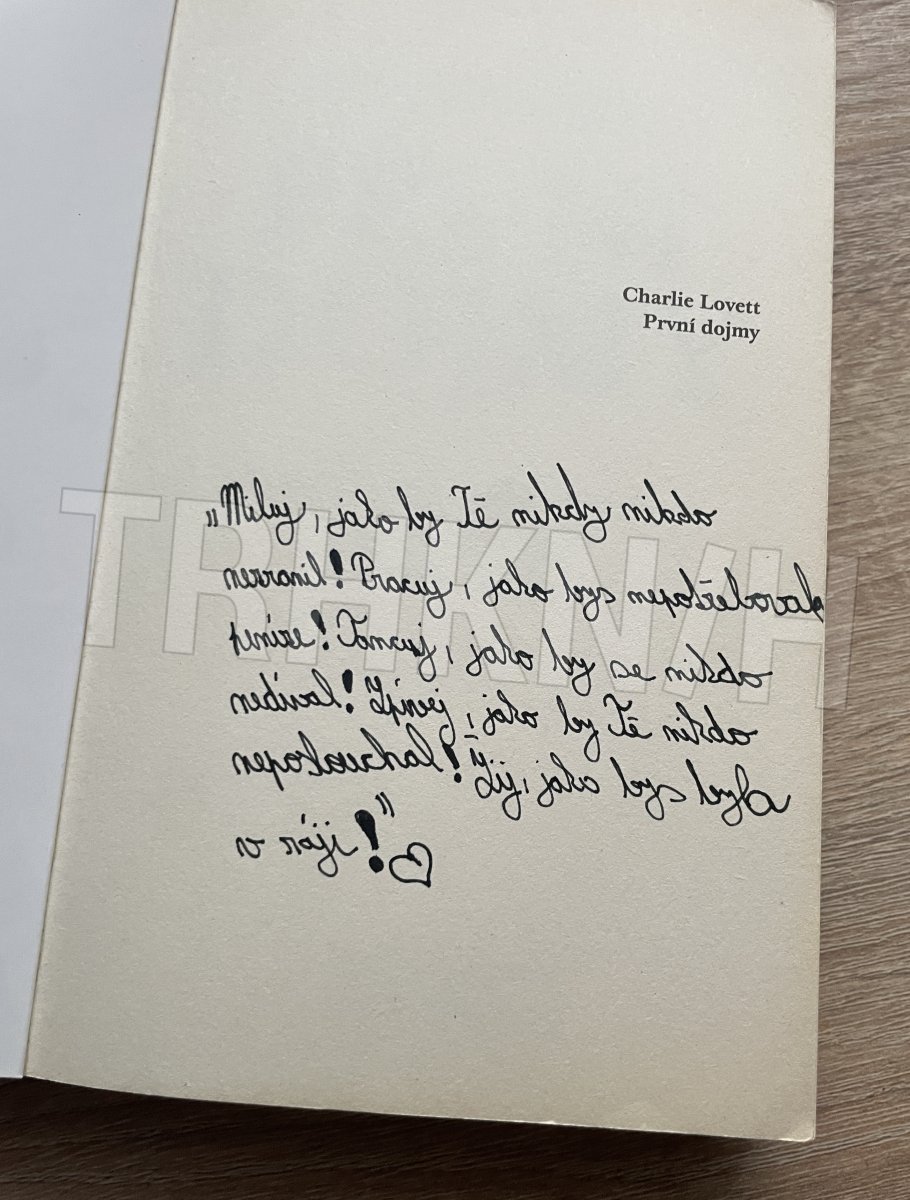 Charlie Lovett
První dojmy
„Miluj, jako by Tě nikdy nikdo
nezranil! Pracuj, jako bys nepotřeboval
peníze! Tancuj, jako by se nikdo
nedíval! Zpívej, jako by Tě nikdo
neposlouchal! Žij, jako bys byla
v ráji!“
TRHKNIH